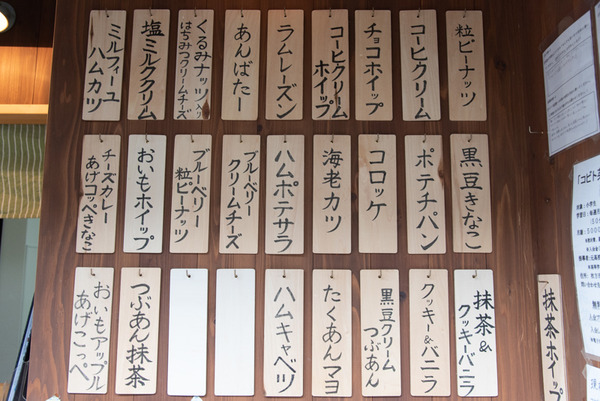 粒ピーナッツ
コーヒクリーム
チョコホイップ
コーヒクリーム
ホイップ
ラムレーズン
あんばたー
くるみナッツ入り
はちみつクリームチーズ
塩ミルククリーム
ミルフィーユ
ハムカツ
黒豆きなこ
ポテチパン
コロッケ
海老カツ
ハムポテサラ
ブルーベリー
クリームチーズ
ブルーベリー
粒ピーナッツ
おいもホイップ
チーズカレー
あげコッペきなこ
抹茶ホイップ
抹茶&
クッキーバニラ
クッキー&バニラ
黒豆クリーム
つぶあん
たくあんマヨ
ハムキャベツ
つぶあん抹茶
おいもアップル
あげこっぺ